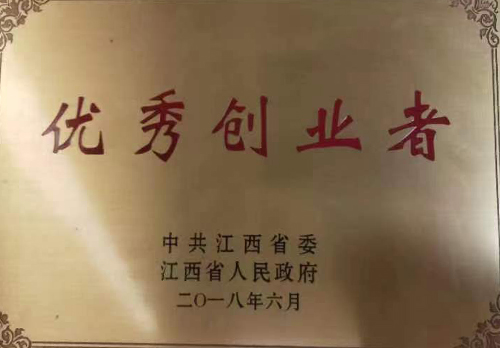 优秀创业者
中共江西省委
江西省人民政府
二〇一八年六月